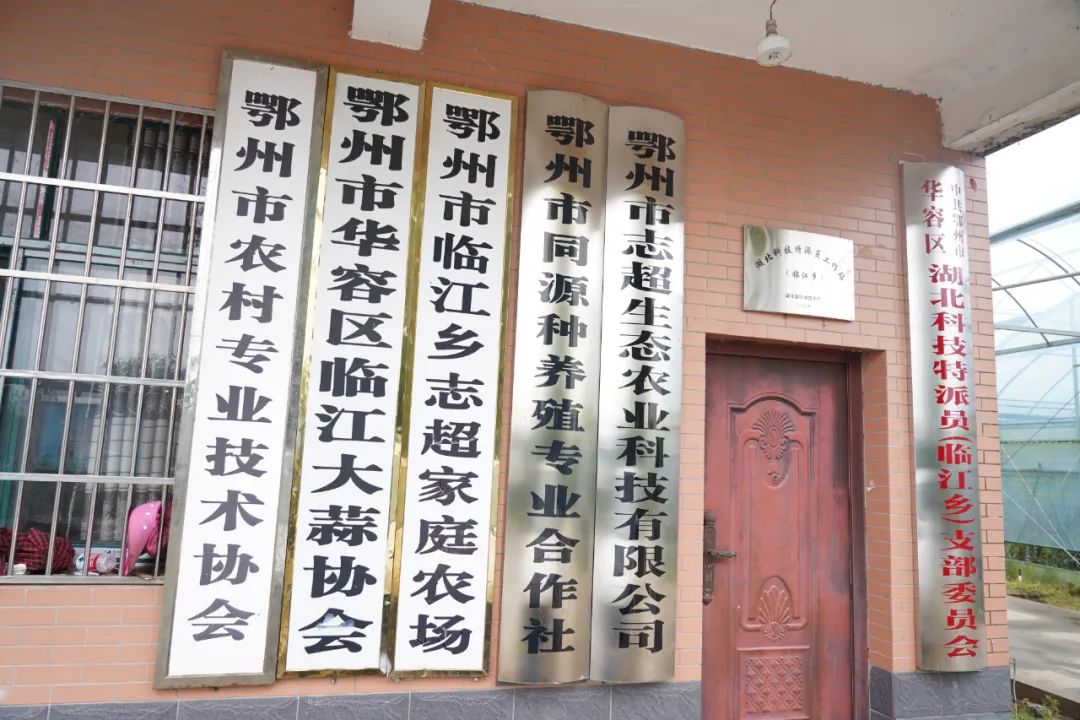 鄂州市农村专业技术协会
鄂州市华容区临江大蒜协会
鄂州市临江乡志超家庭农场
鄂州市同源种养殖专业合作社
鄂州市志超生态农业科技有限公司
湖北科技特派员工作站
(临江乡)
中共鄂州市
华容区
湖北科技特派员(临江乡)支部委员会